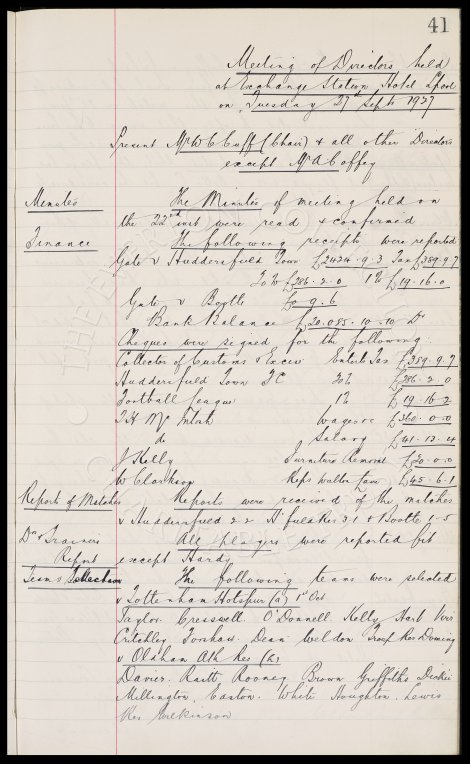 41
Meeting of Directors held
at Exchange Station Hotel L'pool
on Tuesday 27th Sept 1927
Present Mr W C Cuff (Chair) & all other Directors
except Mr A Coffey
Minutes The Minutes of meeting held on
the 22nd inst were read & confirmed
Finance The following receipts were reported
Gate v Huddersfield Town £2434.9.3 Tax £389.9.7
20% £286.2.0 1% £19.16.0
Gate v Bootle £0.9.6
Bank Balance £20,085.10.10 Dr
Cheques were signed for the following:
Collector of Customs & Excise Entert Tax £389.9.7
Huddersfield Town FC 20% £286.2.0
Football League 1% £19.16.2
T.H. McIntosh Wages &c £360.0.0
do Salary £41.13.4
J Kelly Furniture Removal £20.0.0
W Clarkson £45.6.1
Report of Matches Reports were received of the matches
v Huddersfield 2-2 H'field Res 3-1 & Bootle 1-5
Drs & Trainers All players were reported fit
Report except Hardy
Teams Selection The following teams were selected
v Tottenham Hotspur (a) 1st Oct
Taylor. Cresswell. O'Donnell. Kelly Hart Virr
Critchley Forshaw Dean Weldon Troup Res Doming
v Oldham Ath Res (h)
Davies. Raitt, Rooney Brown Griffiths Dickie
Millington, Easton. White Houghton. Lewis
Res Wilkinson